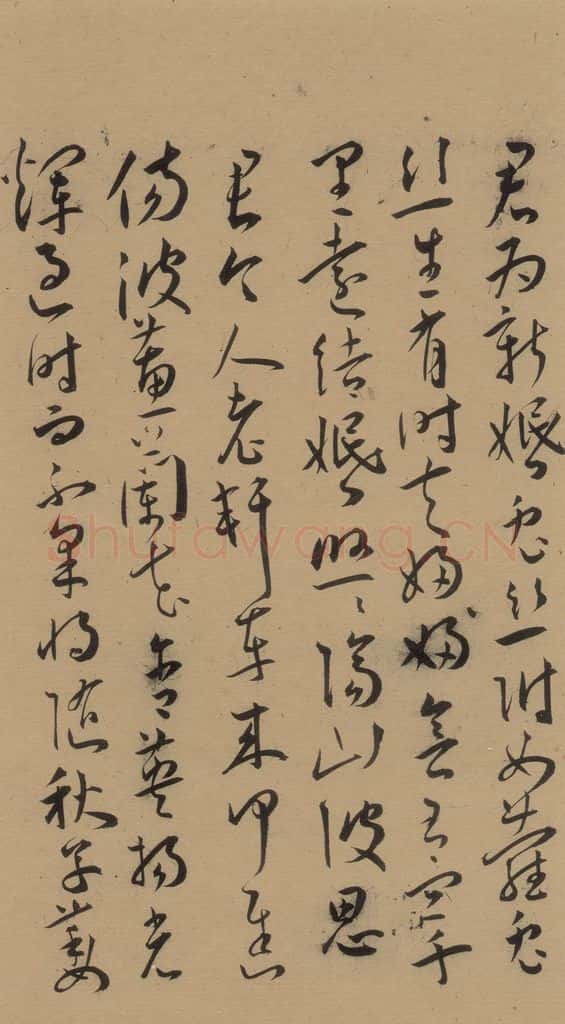 君為新婚兔絲附女蘿兔
絲生有時夫婦婦會有宜千
里遠結婚悠悠隔山陂思
君令人老軒車來何遲
傷彼蕙蘭花含英揚光
輝過時而不采將隨秋草萎
Shufawang.CN